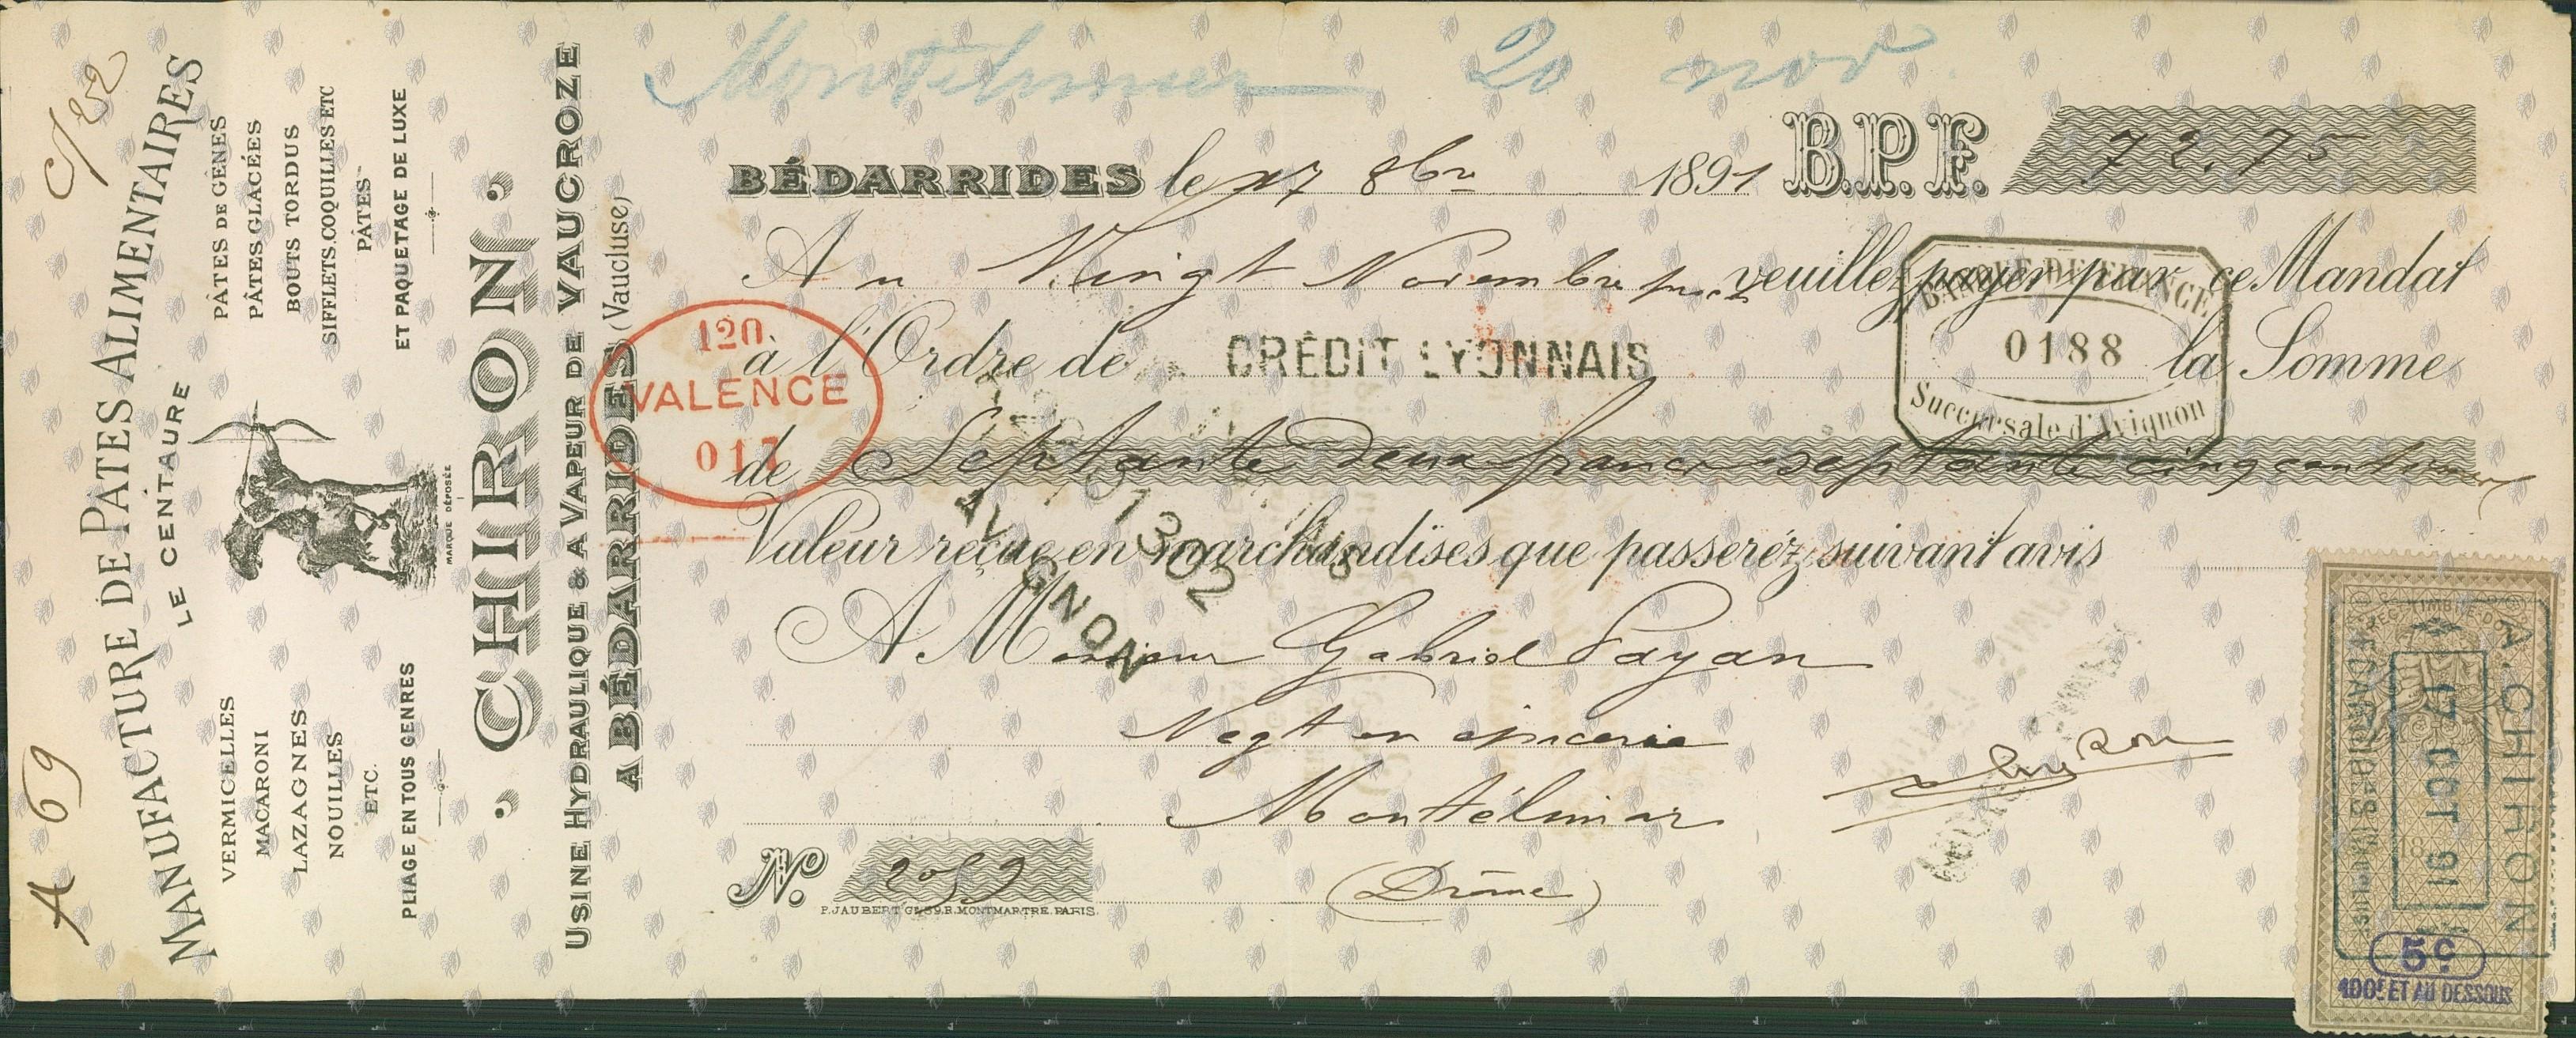 C/ 22
A 69
MANUFACTURE DE PATES ALIMENTAIRES
LE CENTAURE
PÂTES DE GÊNES
PÂTES GLACÉES
BOUTS TORDUS
SIFFLETS, COQUILLES ETC
PÂTES
ET PAQUETAGE DE LUXE
VERMICELLES
MACARONI
LAZAGNES
NOUILLES
ETC.
PLIAGE EN TOUS GENRES
MARQUE DÉPOSÉE
CHIRON
USINE HYDRAULIQUE & A VAPEUR DE VAUCROZE
A BÉDARRIDES (Vaucluse)
Montelimar 20 nov
BÉDARRIDES le 17 8bre 1891 B.P.F. 72.75
Au Vingt Novembre proch veuillez payer par ce Mandat
à l'Ordre de CRÉDIT LYONNAIS la Somme
de Septante deux francs septante cinq centimes
Valeur reçue en marchandises que passeréz suivant avis
A Monsieur Gabriel Payan
Negt en épicerie
Montélimar
(Drôme)
No. 2052
P. JAUBERT Gr 59. B. MONTMARTRE. PARIS.
120
VALENCE
017
BANQUE DE FRANCE
0188
Succursale d'Avignon
1302
AVIGNON
A. CHIRON
17 OCT 91
BÉDARRIDES (Vaucluse)
5c
100f ET AU DESSOUS